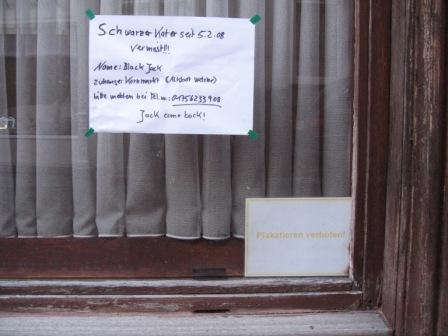 Schwarzer Kater seit 5.2.08
vermeist!!!
Name: Black Jack
zuhause Kornmarkt (Altstadt Wetzlar)
bitte melden bei Tel. nr.: 01756233908
Jack come back!
Plakatieren verboten!